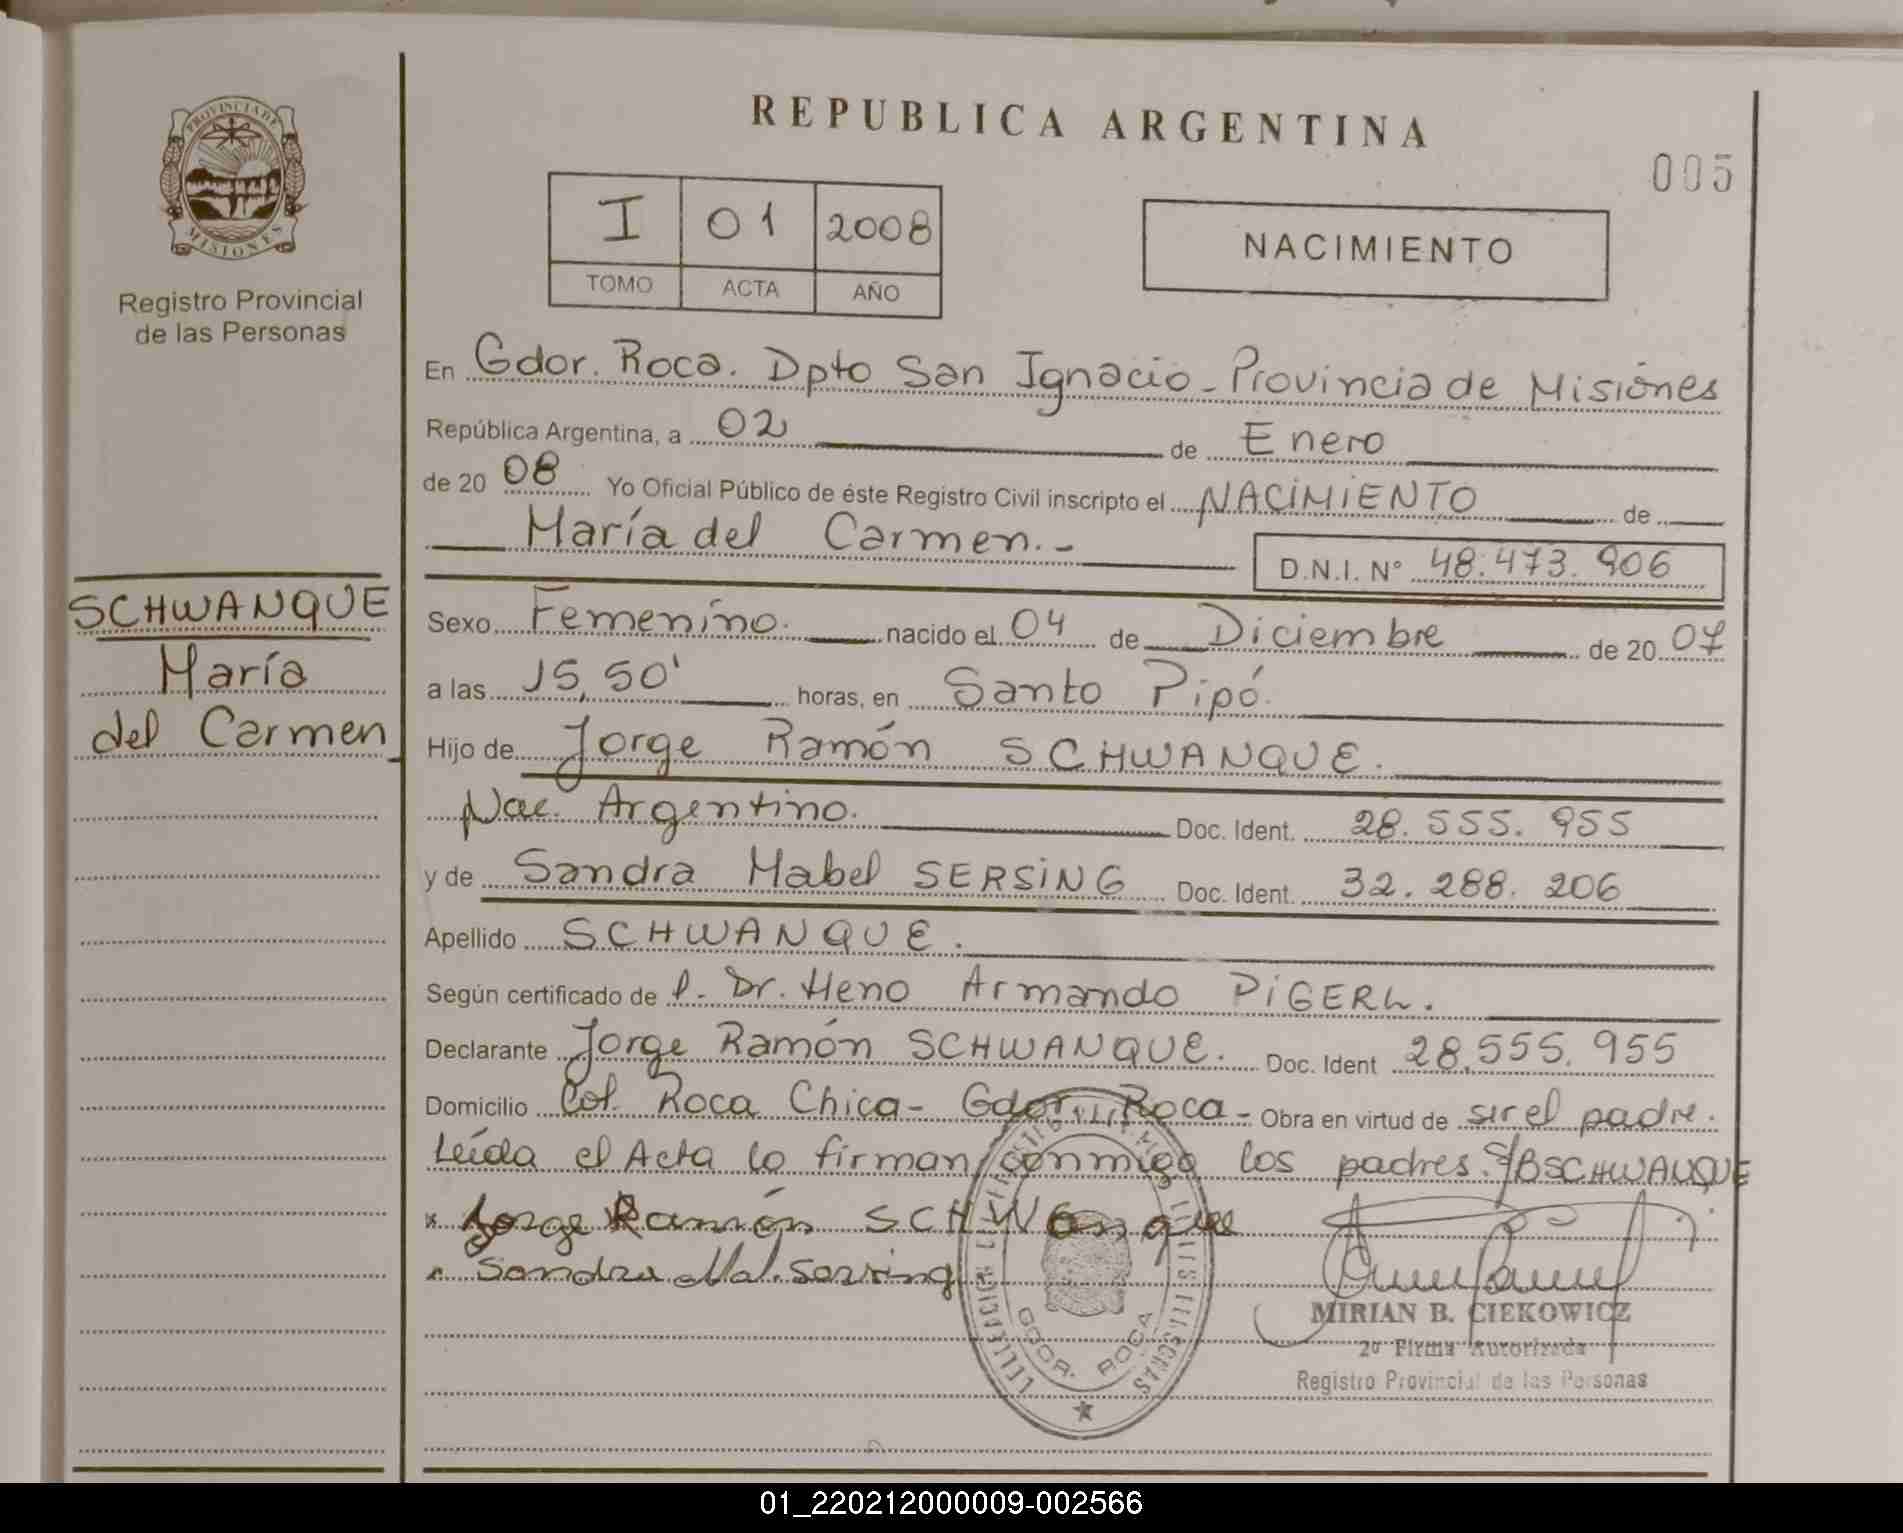 REPUBLICA ARGENTINA
005
PROVINCIA DE
MISIONES
Registro Provincial
de las Personas
I 01 2008
TOMO ACTA AÑO
NACIMIENTO
En Gdor. Roca. Dpto San Ignacio - Provincia de Misiones
República Argentina, a 02 de Enero
de 20 08 Yo Oficial Público de éste Registro Civil inscripto el NACIMIENTO de
María del Carmen.-
D.N.I. Nº 48.473.906
SCHWANQUE
María
del Carmen
Sexo Femenino. nacido el 04 de Diciembre de 20 07
a las 15,50' horas, en Santo Pipó.
Hijo de Jorge Ramón SCHWANQUE.
Nac. Argentino. Doc. Ident. 28.555.955
y de Sandra Mabel SERSING Doc. Ident. 32.288.206
Apellido SCHWANQUE.
Según certificado de p. Dr. Heno Armando PIGERL.
Declarante Jorge Ramón SCHWANQUE. Doc. Ident 28.555.955
Domicilio Col. Roca Chica - Gdor. Roca - Obra en virtud de ser el padre.
Leída el Acta lo firman conmigo los padres. SCHWANQUE
x Jorge Ramón SCHWanque
Sandra Sersing
GDOR. ROCA
MIRIAN B. CIEKOWICZ
2º Firma Autorizada
Registro Provincial de las Personas
01_220212000009-002566